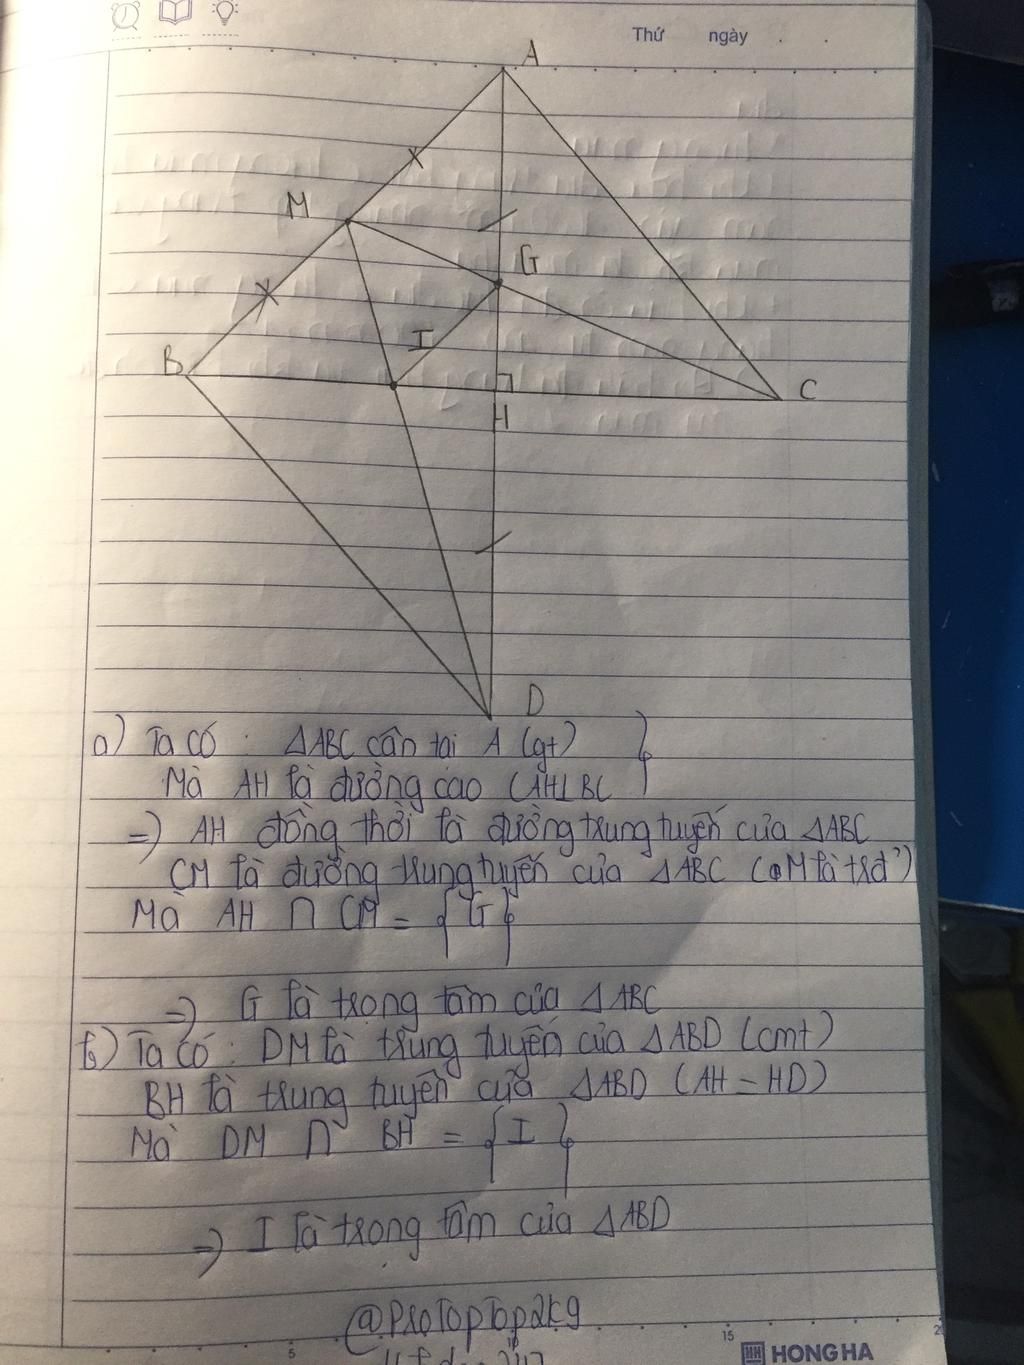 Thứ ngày
A
M
G
I
B
C
H
D
a) Ta có : ΔABC cân tại A (gt) }
Mà AH là đường cao (AH⊥BC
=) AH đồng thời là đường trung tuyến của ΔABC
CM là đường trung tuyến của ΔABC (M là trđ')
Mà AH ∩ CM = {G}
=) G là trọng tâm của ΔABC
b) Ta có : DM là trung tuyến của ΔABD (cmt)
BH là trung tuyến của ΔABD (AH = HD)
Mà DM ∩ BH = {I}
=) I là trọng tâm của ΔABD
@ProTopTop2k9
5 10 15
HONG HA